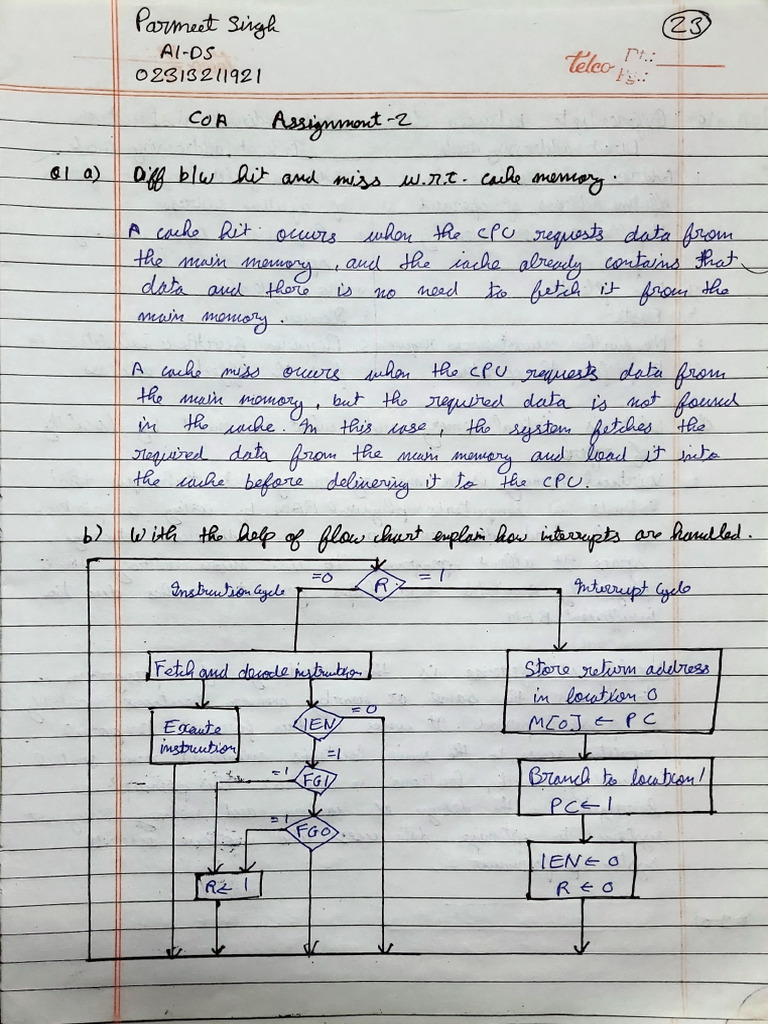 Parmeet Singh
23
AI-DS
02313211921
Telco Dt.:
Pg.:
COA Assignment-2
Q1 a) Diff b/w hit and miss w.r.t. cache memory.
A cache hit occurs when the CPU requests data from
the main memory, and the cache already contains that
data and there is no need to fetch it from the
main memory.
A cache miss occurs when the CPU requests data from
the main memory, but the required data is not found
in the cache. In this case, the system fetches the
required data from the main memory and load it into
the cache before delivering it to the CPU.
b) With the help of flow chart explain how interrupts are handled.
Instruction Cycle =0 R =1 Interrupt Cycle
Fetch and decode instruction
Store return address
in location 0
M[0] ← PC
Execute
instruction
IEN =0
=1
=1 FGI
Branch to location 1
PC ← 1
=1 FGO
R ← 1
IEN ← 0
R ← 0